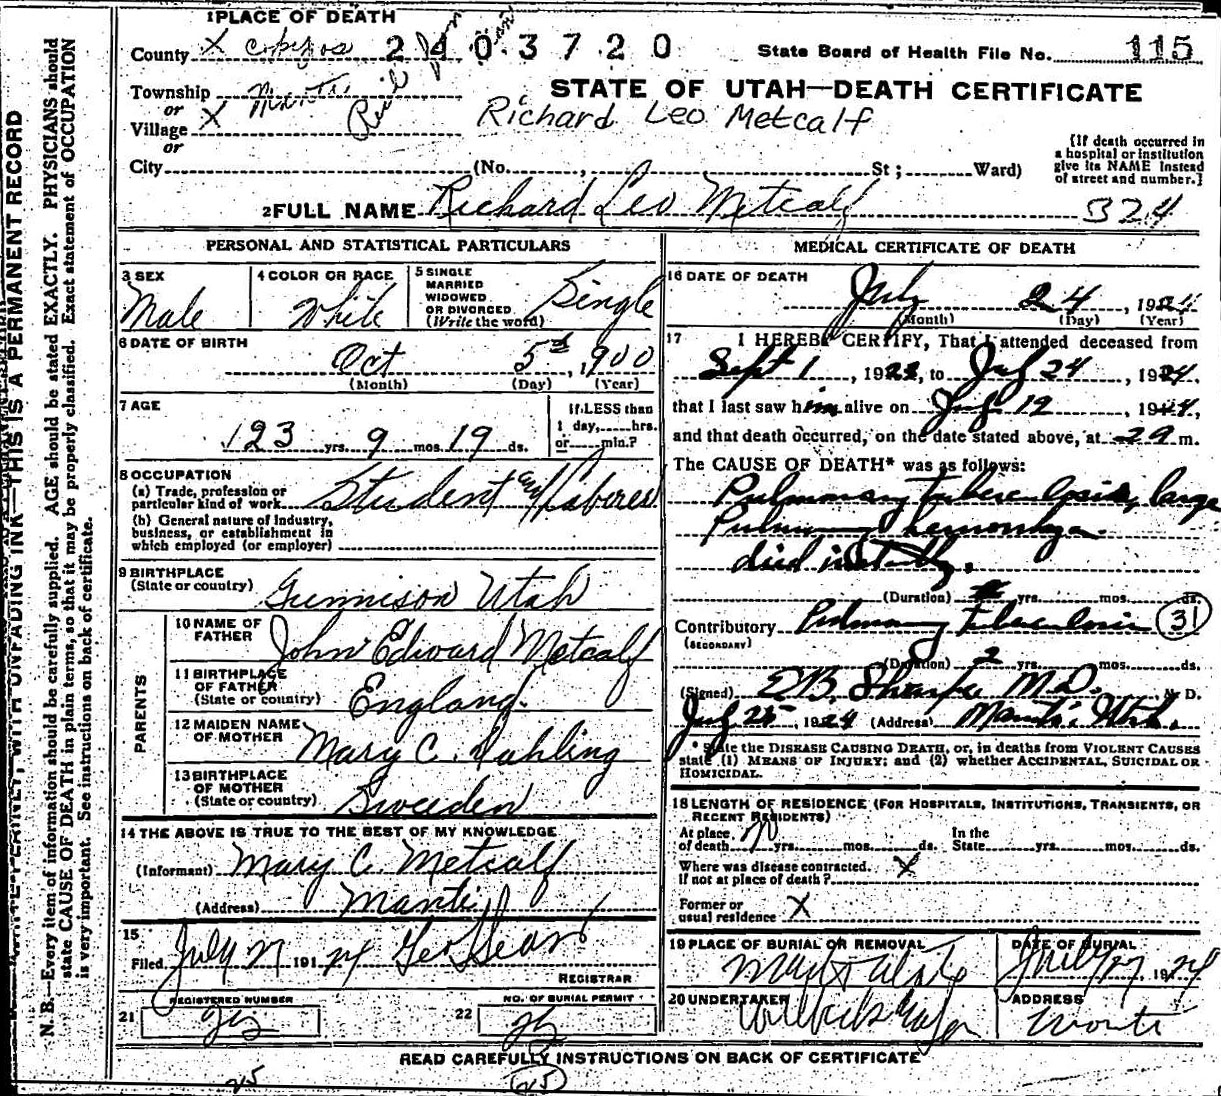 1 PLACE OF DEATH
County X
2403720
State Board of Health File No. 115
Township Manti
or
Village X
or
STATE OF UTAH—DEATH CERTIFICATE
Richard Leo Metcalf
City (No. , St ; Ward)
[If death occurred in
a hospital or institution
give its NAME instead
of street and number.]
2 FULL NAME Richard Leo Metcalf 324
PERSONAL AND STATISTICAL PARTICULARS
3 SEX
Male
4 COLOR OR RACE
White
5 SINGLE
MARRIED
WIDOWED
OR DIVORCED
(Write the word)
Single
6 DATE OF BIRTH
Oct 5th, 1900
(Month) (Day) (Year)
7 AGE
23 yrs. 9 mos. 19 ds.
If LESS than
1 day, hrs.
or min.?
8 OCCUPATION
(a) Trade, profession or
particular kind of work Student and Laborer
(b) General nature of industry,
business, or establishment in
which employed (or employer)
9 BIRTHPLACE
(State or country) Gunnison Utah
PARENTS
10 NAME OF
FATHER John Edward Metcalf
11 BIRTHPLACE
OF FATHER
(State or country) England.
12 MAIDEN NAME
OF MOTHER Mary C. Dahling
13 BIRTHPLACE
OF MOTHER
(State or country) Sweeden
14 THE ABOVE IS TRUE TO THE BEST OF MY KNOWLEDGE
(Informant) Mary C. Metcalf
(Address) Manti
15
Filed July 27 191 24 Geo
REGISTRAR
REGISTERED NUMBER
21
NO. OF BURIAL PERMIT
22
MEDICAL CERTIFICATE OF DEATH
16 DATE OF DEATH
July 24, 1924
(Month) (Day) (Year)
17 I HEREBY CERTIFY, That I attended deceased from
Sept 1, 192, to July 24, 1924,
that I last saw him alive on July 19, 1924,
and that death occurred, on the date stated above, at m.
The CAUSE OF DEATH* was as follows:
Pulmonary tuberculosis, large
Pulmonary hemorrhage.
died instantly.
(Duration) yrs. mos. ds.
Contributory Pulmonary Tuberculosis 31
(SECONDARY)
(Duration) 2 yrs. mos. ds.
(Signed) M.D. M. D.
July 25, 1924 (Address) Manti, Utah.
* State the DISEASE CAUSING DEATH, or, in deaths from VIOLENT CAUSES
state (1) MEANS OF INJURY; and (2) whether ACCIDENTAL, SUICIDAL OR
HOMICIDAL.
18 LENGTH OF RESIDENCE (FOR HOSPITALS, INSTITUTIONS, TRANSIENTS, OR
RECENT RESIDENTS)
At place
of death yrs. mos. ds. In the
State yrs. mos. ds.
Where was disease contracted. X
If not at place of death?
Former or
usual residence X
19 PLACE OF BURIAL OR REMOVAL
Manti Utah
DATE OF BURIAL
July 27, 1924
20 UNDERTAKER
ADDRESS
Manti
READ CAREFULLY INSTRUCTIONS ON BACK OF CERTIFICATE
25
25
WRITE PLAINLY, WITH UNFADING INK—THIS IS A PERMANENT RECORD
N. B.—Every item of information should be carefully supplied. AGE should be stated EXACTLY. PHYSICIANS should
state CAUSE OF DEATH in plain terms, so that it may be properly classified. Exact statement of OCCUPATION
is very important. See instructions on back of certificate.